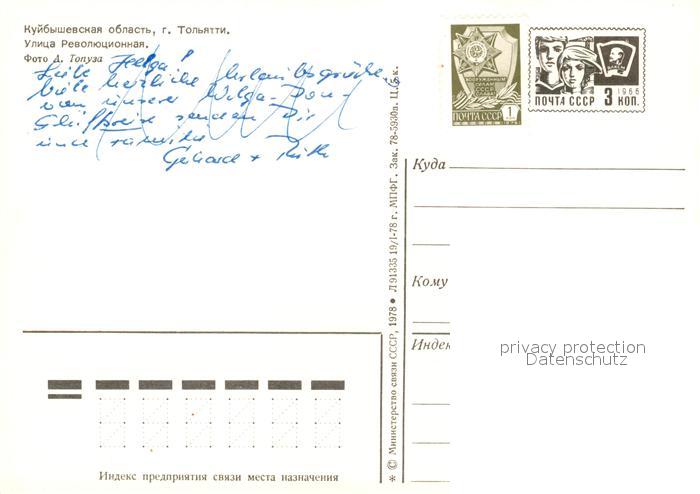 Куйбышевская область, г. Тольятти.
Улица Революционная.
Фото Д. Топуза
Liebe Helga!
viele herzliche Urlaubsgrüße
von unserer Wolga-Don-
Schiffsreise senden Dir
und Familie
Gerhard + Ruth
ВООРУЖЕННЫМ СИЛАМ СССР
ПОЧТА СССР 1
1966
ПОЧТА СССР 3 КОП.
Куда
Кому
Индек
privacy protection
Datenschutz
* © Министерство связи СССР, 1978 • Л 91335 19/I-78 г. МПФГ. Зак. 78-5930п. Ц. 5 к.
Индекс предприятия связи места назначения